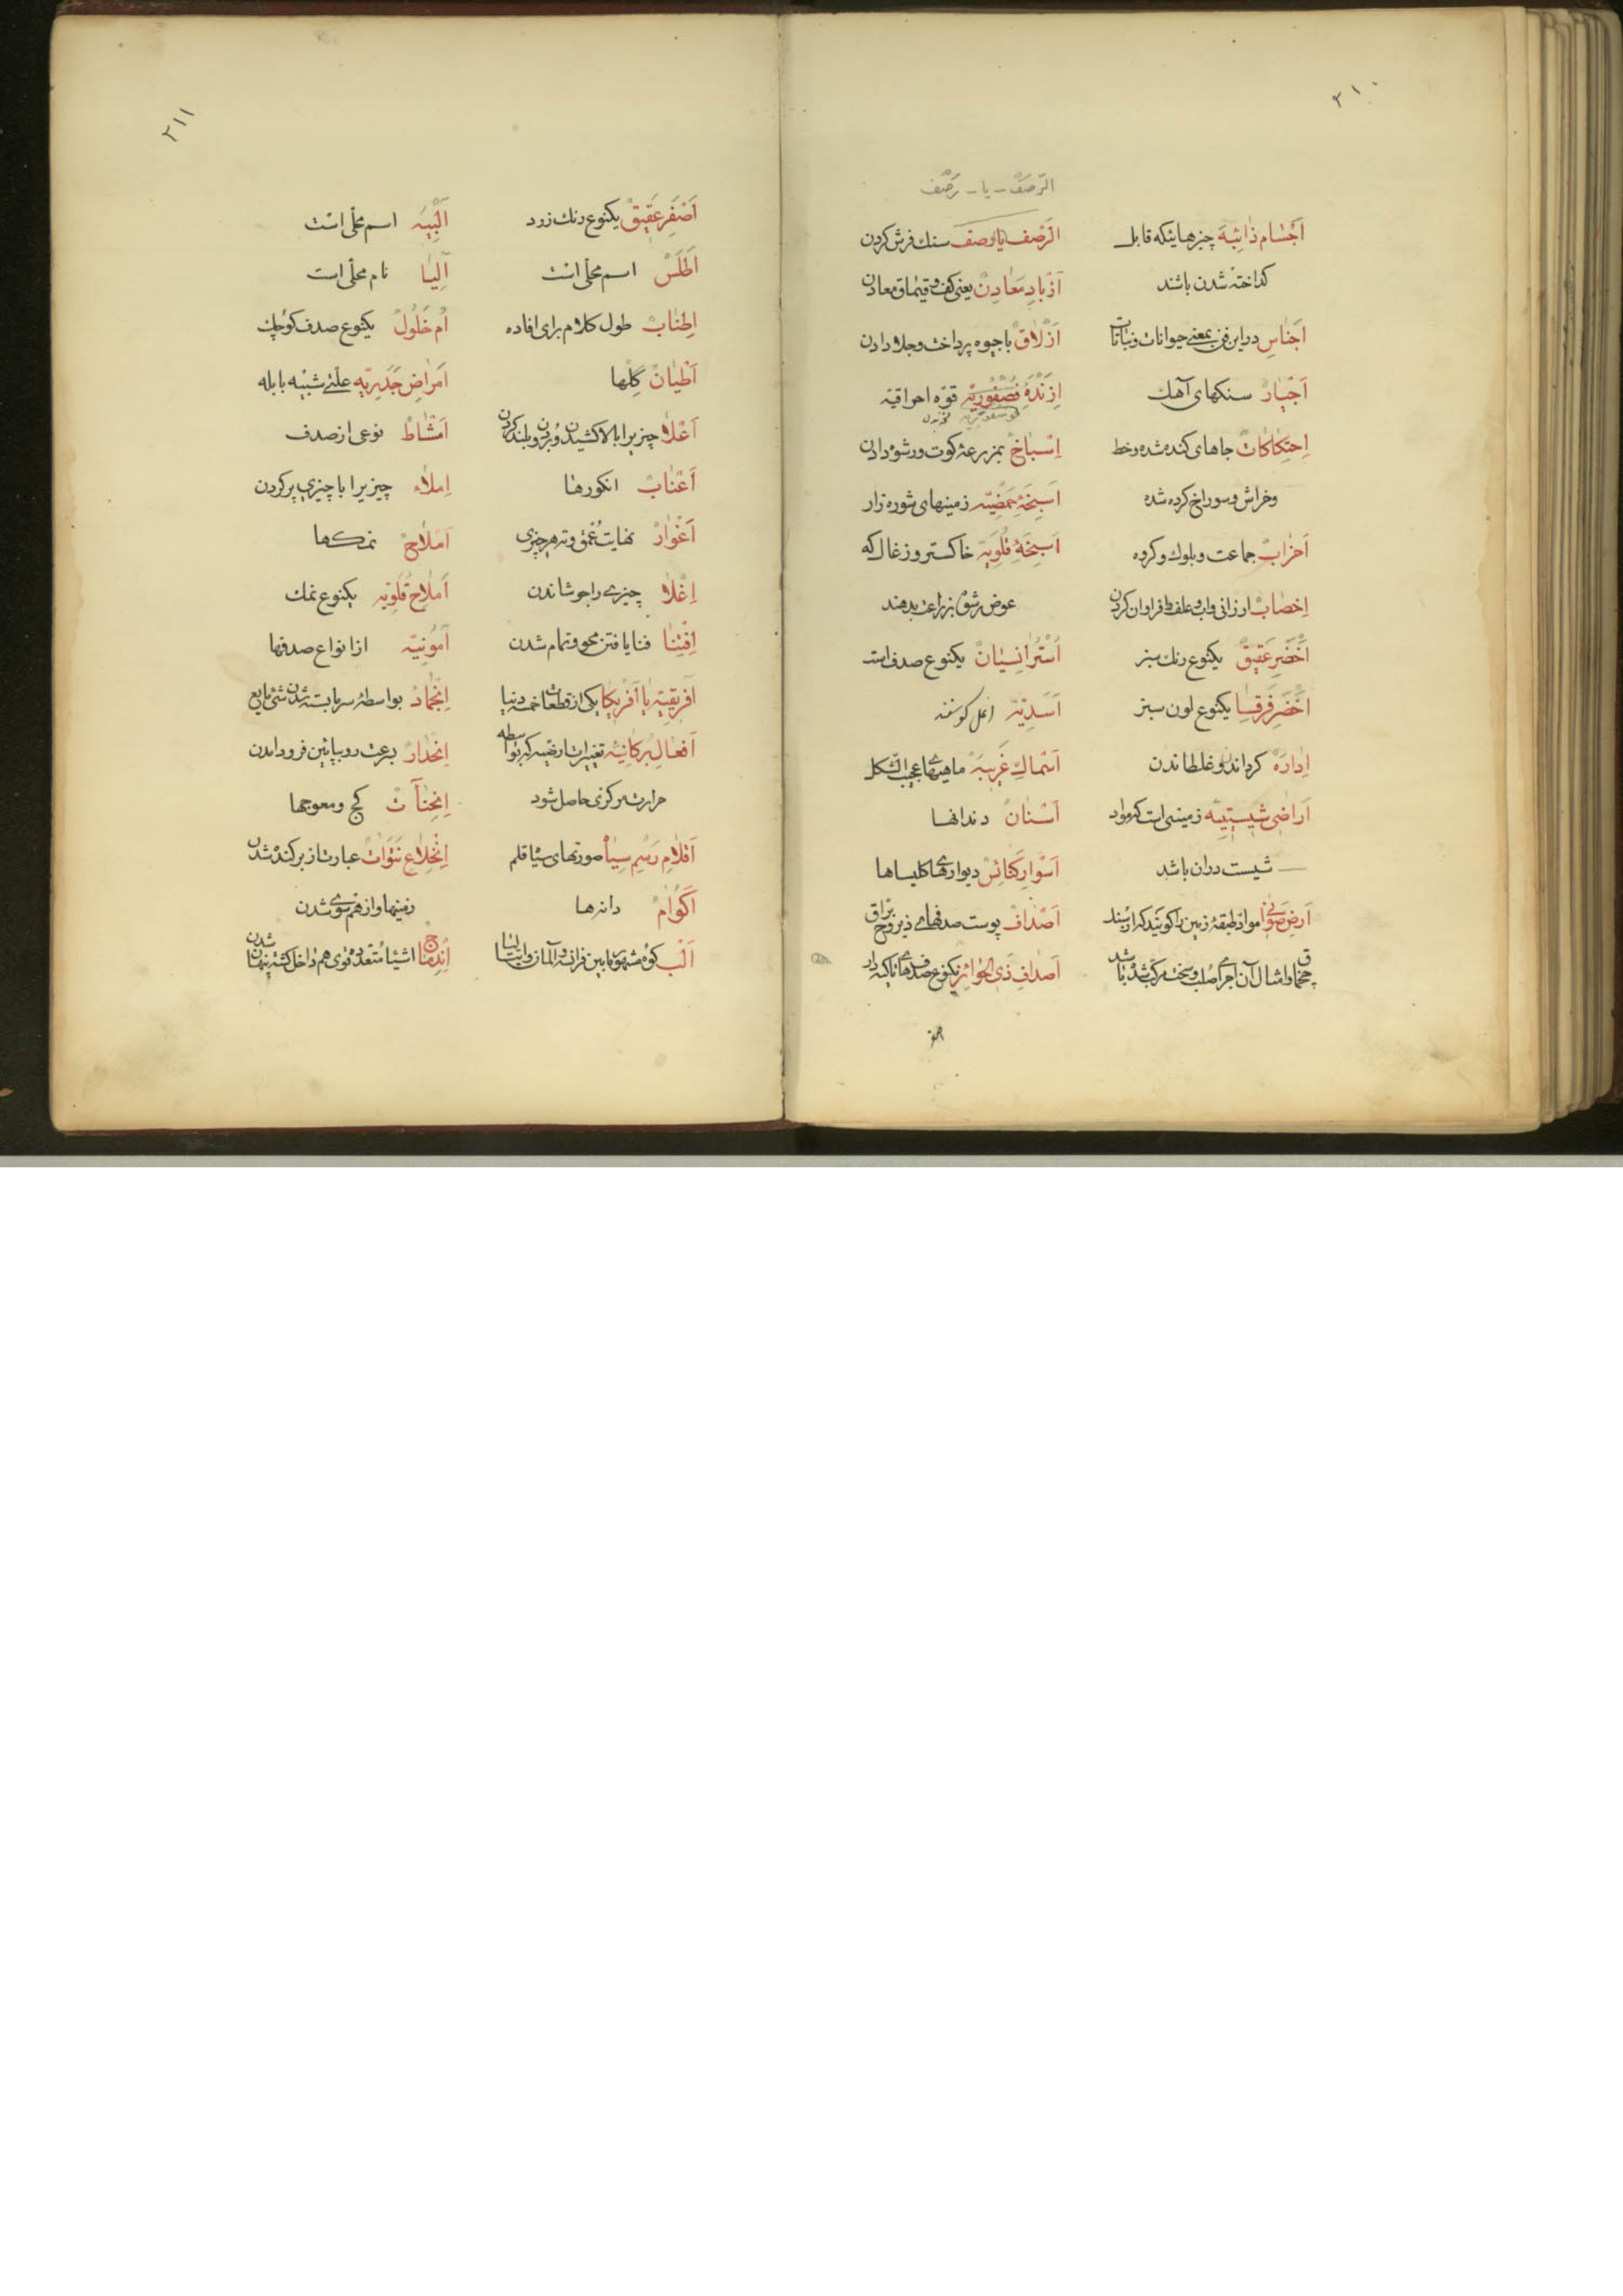 ٢١٠
الرّصف - یا - رَصْف
اَجْسٰام ذٰائِبَه چیزهائیکه قابل
کداختهٔ شدن باشند
اَجناسِ دراین فن بمعنی حیوانات و نباتات
اَجْیٰارْ سنکهای آهك
اِحتِکٰاکٰاتْ جاهای کنده شده و خط
وخراش و سوراخ کرده شده
اَحزٰابْ جماعت و بلوك و کروه
اِخصٰابْ ارزانی و آب و علف و فراوان کردن
اَخْضَرِ عَقیقْ یکنوع رنك سبز
اَخْضَرِ فَرَقسٰا یکنوع لون سبز
اِدٰارَه کرداندن و غلطاندن
اَراضیِ شیستیّه زمینی است که مواد
شیست در آن باشد
اَرضِ صَوّانی مواد طبقهٔ زمین را کویند که از سُند
چخماق و امثال آن اجزای صُلب و سخت مرکب شده باشد
الرّصف یا رصف سنك فرش کردن
اَزْبٰادِ مَعٰادِنْ یعنی کف و قیماق معادن
اَزْلاقْ با جیوه پرداخت و جلا دادن
اِزنْدَهٔ فُصْفُوریّه قوّه احراقیّه
فوسفوریّه
اِسْبٰاخْ بمزرعه کوت و رشوه دادن
اَسبِخَهٔ حَمضیّه زمینهای شوره زار
اَسبِخَهٔ قَلَویّه خاکستر و زغال که
عوض رشوه بزراعت بدهند
اُسْتُرٰانسیٰانْ یکنوع صدف است
اَسَدیّه
اَسْماكِ غَریبَه ماهیهای عجیب الشکل
اَسْنٰانْ دندانها
اَسْوارِ کَنٰائِسْ دیوارهای کلیساها
اَصْدٰافْ پوست صدفهای ذیروح برّاق
اَصدٰافِ ذَی الحَوٰائِز یکنوع صدفهای تاکیه دار
٢١١
اَصْفَرِ عَقیقْ یکنوع رنك زرد
اَطلَسْ اسم محلّی است
اِطنٰابْ طول کلام برای افاده
اَطْیٰانْ گِلها
اَعْلا چیزیرا بالا کشیدن و بردن و بلند کردن
اَعْنٰابْ انکورها
اَغْوٰارْ نهایت عُمق و ته هر چیزی
اِغْلٰا چیزی را جوشاندن
اِفتِنٰا فنا یافتن محو و تمام شدن
اَفریقیّه یا آفْریکا یکی از قطعات خمسه دنیا
اَفعٰالِ بُرکٰانیّه تغییرات ارضیّه که بواسطه
حرارت مرکزی حاصل شود
اَقلٰامِ رَسْمِ سِیٰاْ صورتهای سیا قلم
اَکْوٰامْ دانه‌ها
اَلْب کوه مشهوری مابین فرانسه و آلمان و ایتالیا
آلْبِیَه اسم محلّی است
آلِیٰا نام محلّی است
اُم خَلُولْ یکنوع صدف کوچك
اَمرٰاضِ جَدَریّه علّتی شبیه بابله
اَمْشٰاطْ نوعی از صدف
اِملٰاء چیزیرا با چیزی پر کردن
اَملٰاحْ نمك‌ها
اَملٰاحِ قَلَویّه یکنوع نمك
آمُونیّه از انواع صدفها
اِنجِمٰادْ بواسطهٔ سرما بسته شدن شئی مایع
اِنحِدٰارْ بسرعت رو بپائین فرود آمدن
اِنحِنٰآتْ کج و معوجها
اِنخِلٰاعِ نَتَوٰاتْ عبارت از برکنده شدن
زمینها و از هم سوی شدن
اِندِمٰاجْ اشیاء متعدده قوی هم داخل کشته پنهان شدن